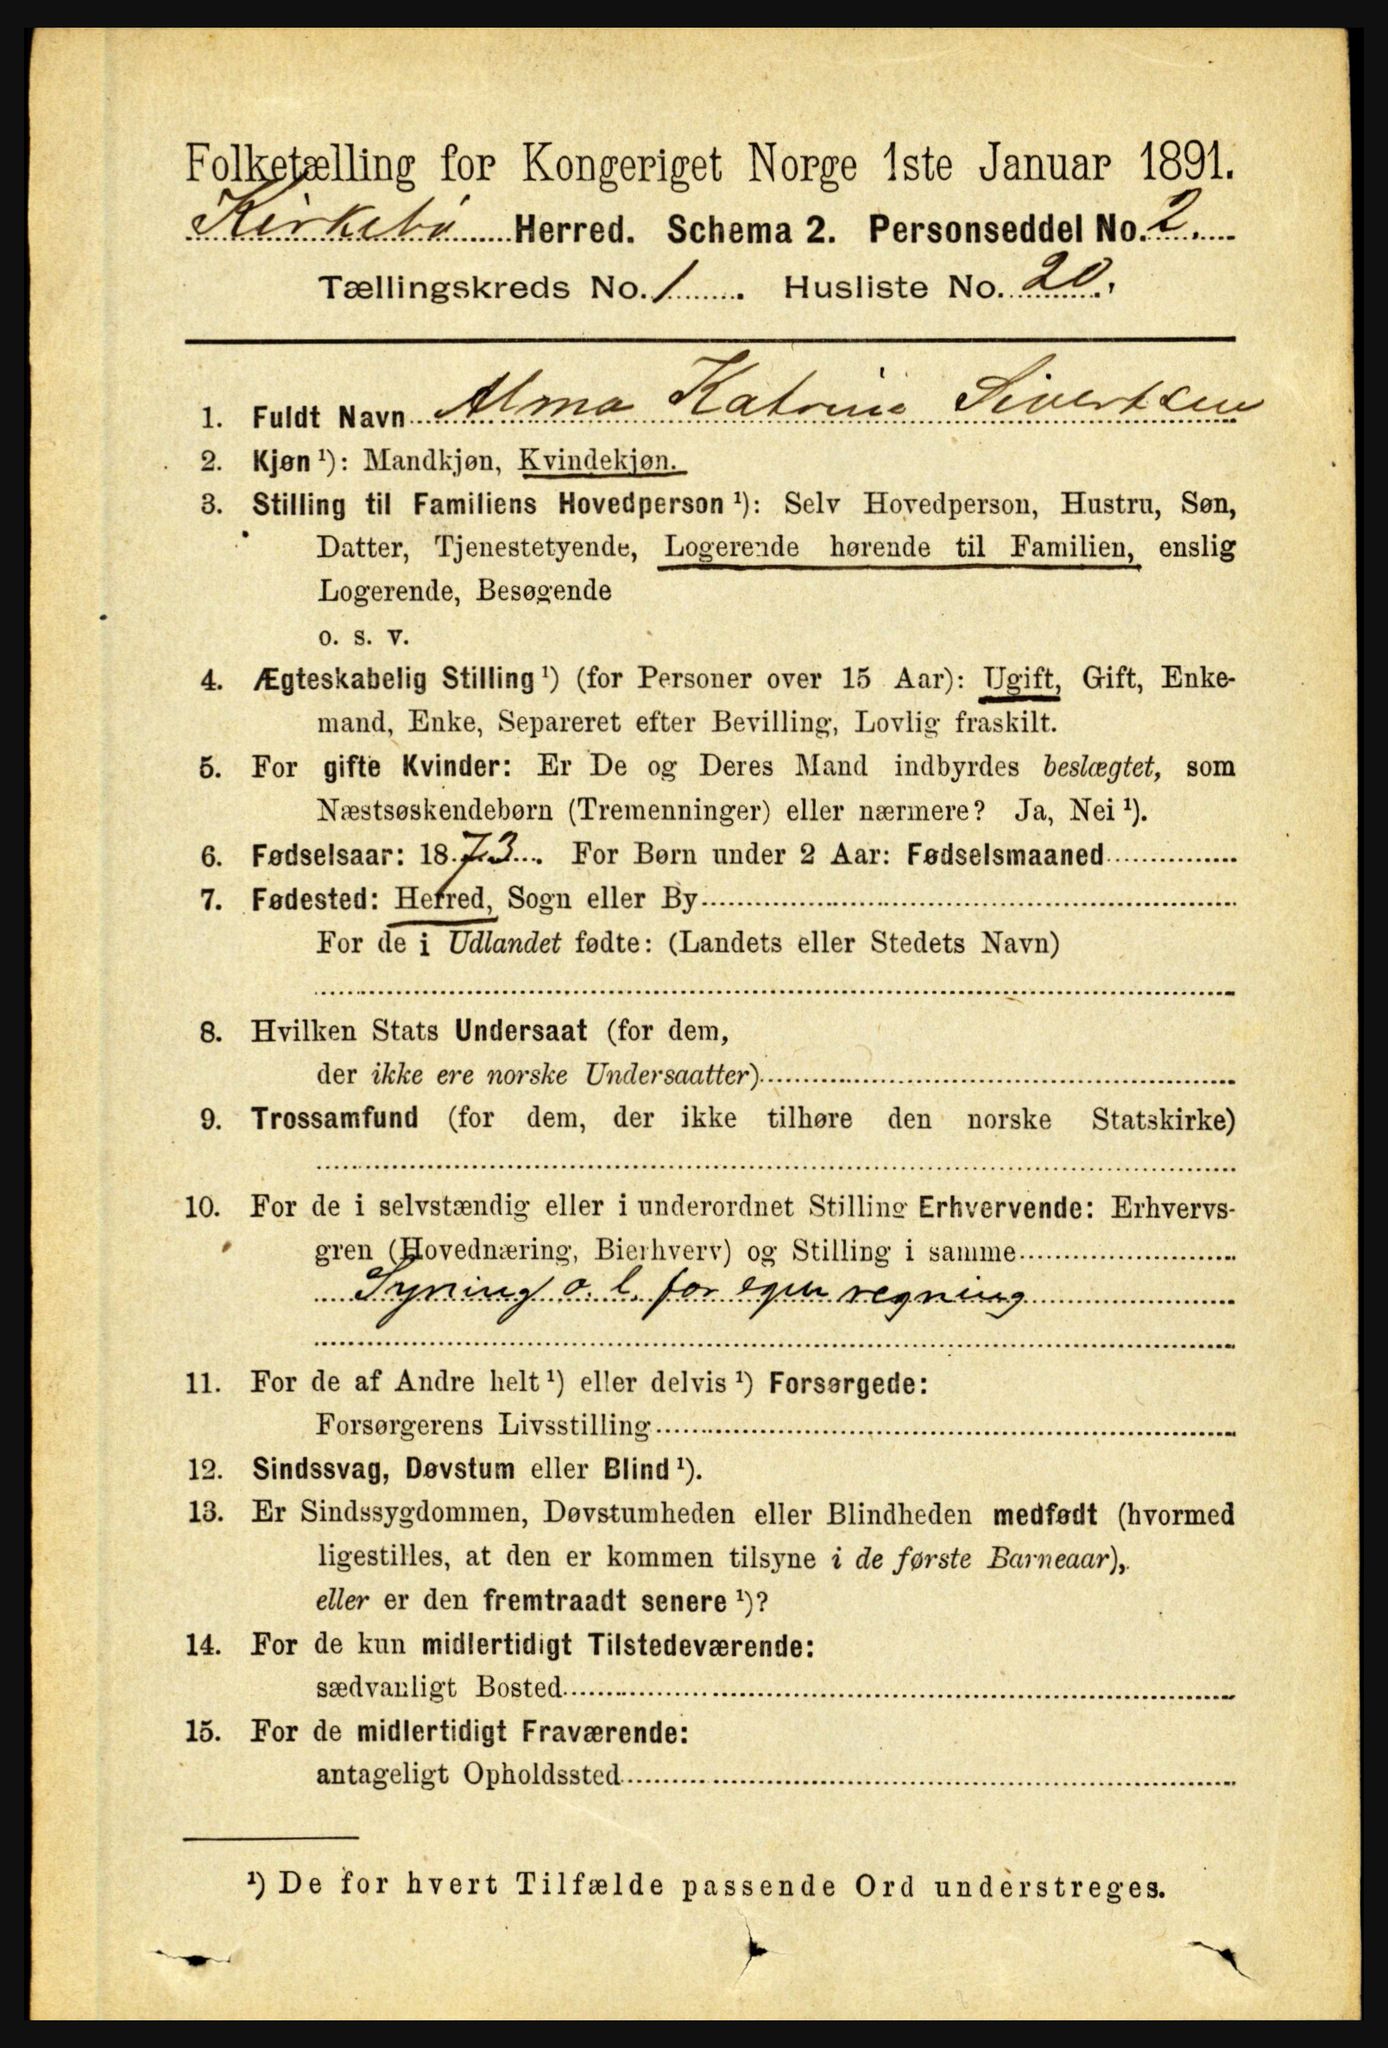 Folketælling for Kongeriget Norge 1ste Januar 1891.
Kirkebø Herred. Schema 2. Personseddel No. 2.
Tællingskreds No. 1. Husliste No. 20.
1. Fuldt Navn Alma Katrine Sivertsen
2. Kjøn ¹): Mandkjøn, Kvindekjøn.
3. Stilling til Familiens Hovedperson ¹): Selv Hovedperson, Hustru, Søn,
Datter, Tjenestetyende, Logerende hørende til Familien, enslig
Logerende, Besøgende
o. s. v.
4. Ægteskabelig Stilling ¹) (for Personer over 15 Aar): Ugift, Gift, Enke-
mand, Enke, Separeret efter Bevilling, Lovlig fraskilt.
5. For gifte Kvinder: Er De og Deres Mand indbyrdes beslægtet, som
Næstsøskendebørn (Tremenninger) eller nærmere? Ja, Nei ¹).
6. Fødselsaar: 1873. For Børn under 2 Aar: Fødselsmaaned
7. Fødested: Herred, Sogn eller By
For de i Udlandet fødte: (Landets eller Stedets Navn)
8. Hvilken Stats Undersaat (for dem,
der ikke ere norske Undersaatter)
9. Trossamfund (for dem, der ikke tilhøre den norske Statskirke)
10. For de i selvstændig eller i underordnet Stilling Erhvervende: Erhvervs-
gren (Hovednæring, Bierhverv) og Stilling i samme
Syning o. l. for egen regning
11. For de af Andre helt ¹) eller delvis ¹) Forsørgede:
Forsørgerens Livsstilling
12. Sindssvag, Døvstum eller Blind ¹).
13. Er Sindssygdommen, Døvstumheden eller Blindheden medfødt (hvormed
ligestilles, at den er kommen tilsyne i de første Barneaar),
eller er den fremtraadt senere ¹)?
14. For de kun midlertidigt Tilstedeværende:
sædvanligt Bosted
15. For de midlertidigt Fraværende:
antageligt Opholdssted
¹) De for hvert Tilfælde passende Ord understreges.